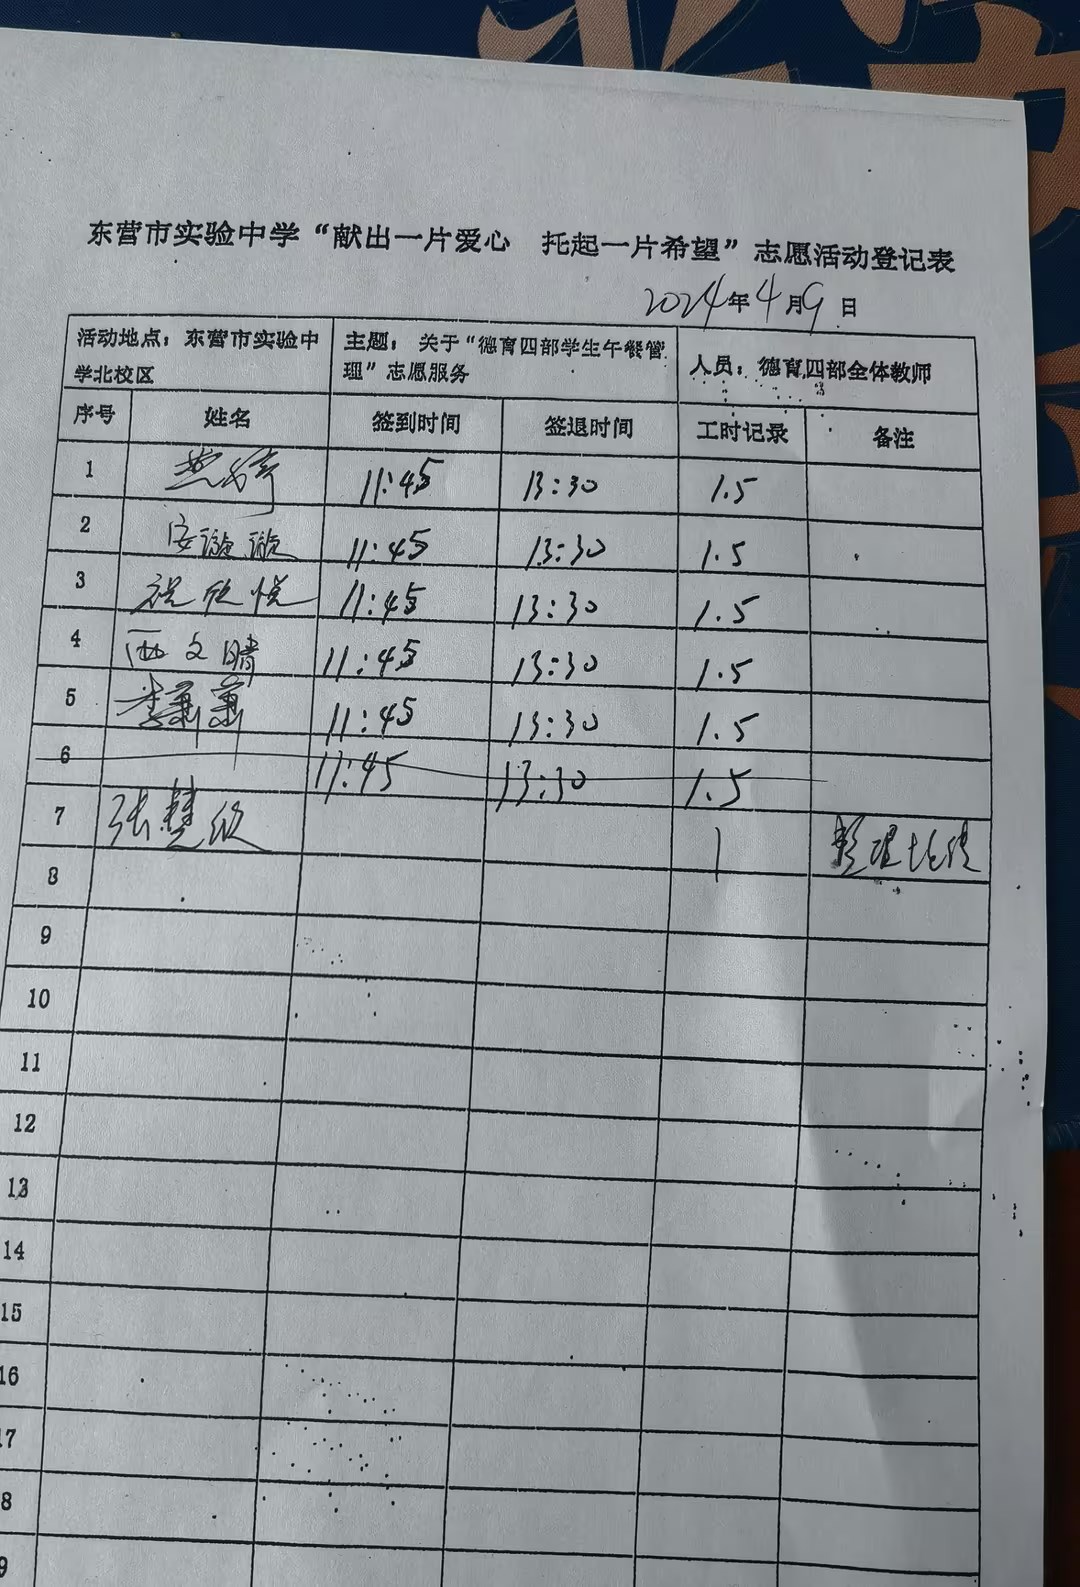 东营市实验中学“献出一片爱心 托起一片希望”志愿活动登记表
2024年4月9日
活动地点：东营市实验中学北校区 主题：关于“德育四部学生午餐管理”志愿服务 人员：德育四部全体教师
序号 姓名 签到时间 签退时间 工时记录 备注
1 11:45 13:30 1.5
2 安璇璇 11:45 13:30 1.5
3 祝欣悦 11:45 13:30 1.5
4 西文晴 11:45 13:30 1.5
5 李萧萧 11:45 13:30 1.5
6 11:45 13:30 1.5
7 张慧欣 1 整理
8
9
10
11
12
13
14
15
16
17
8
9